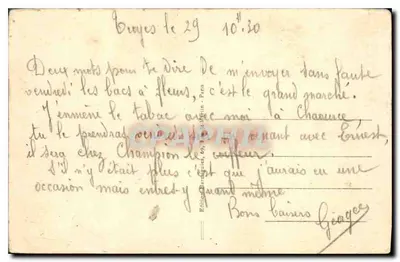 Troyes le 29 10h30
Deux mots pour te dire de m'envoyer sans faute
vendredi les bacs à fleurs, c'est le grand marché.
J'emmène le tabac avec moi à Chaource,
tu le prendras en venant avec Ernest,
il sera chez Champion le coiffeur.
S'il n'y était plus c'est que j'aurais eu une
occasion mais entres-y quand même
Bons baisers Georges